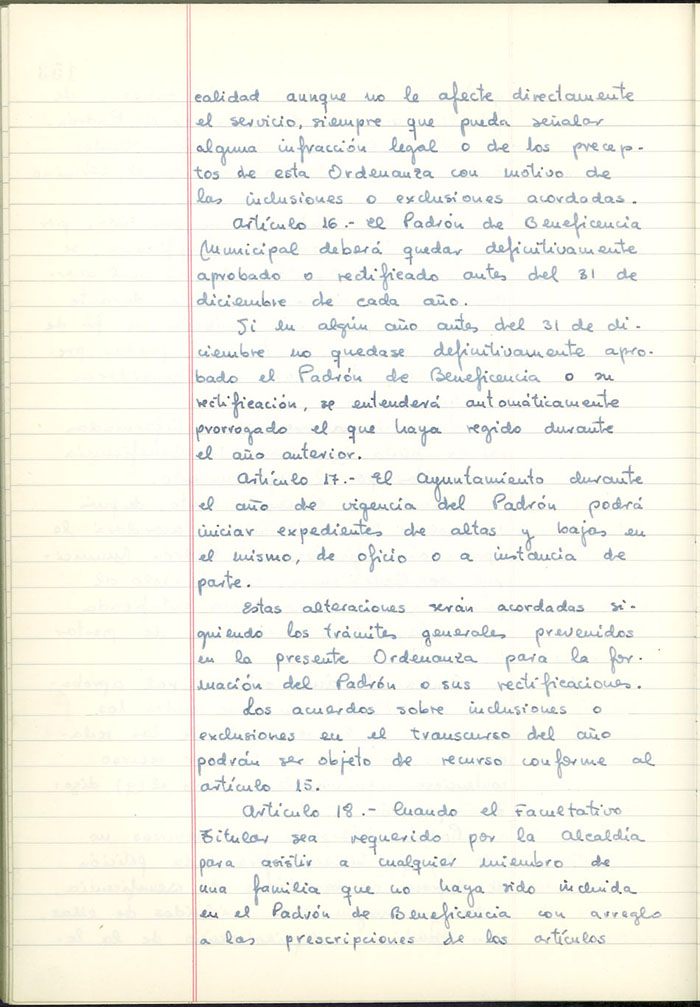 calidad aunque no le afecte directamente
el servicio, siempre que pueda señalar
alguna infracción legal o de los precep-
tos de esta Ordenanza con motivo de
las inclusiones o exclusiones acordadas.
Artículo 16.- El Padrón de Beneficencia
Municipal deberá quedar definitivamente
aprobado o rectificado antes del 31 de
diciembre de cada año.
Si en algún año antes del 31 de di-
ciembre no quedase definitivamente apro-
bado el Padrón de Beneficencia o su
rectificación, se entenderá automáticamente
prorrogado el que haya regido durante
el año anterior.
Artículo 17.- El Ayuntamiento durante
el año de vigencia del Padrón podrá
iniciar expedientes de altas y bajas en
el mismo, de oficio o a instancia de
parte.
Estas alteraciones serán acordadas si-
guiendo los trámites generales prevenidos
en la presente Ordenanza para la for-
mación del Padrón o sus rectificaciones.
Los acuerdos sobre inclusiones o
exclusiones en el transcurso del año
podrán ser objeto de recurso conforme al
artículo 15.
Artículo 18.- Cuando el Facultativo
Titular sea requerido por la Alcaldía
para asistir a cualquier miembro de
una familia que no haya sido incluida
en el Padrón de Beneficencia con arreglo
a las prescripciones de los artículos